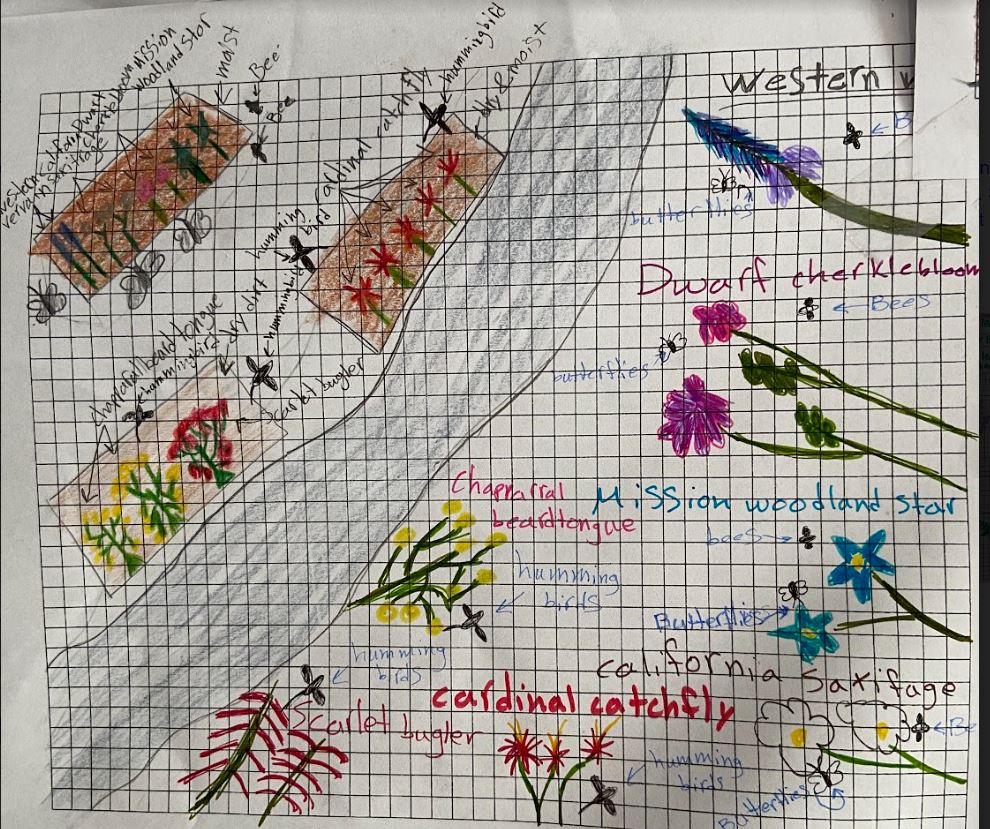 western
Mission
woodland Star
Dwarf
moist
Bee
Bee
cardinal catchfly
hummingbird
dry & moist
humming
bird
chaparral beard tongue
hummingbird
dry dirt
hummingbird
Scarlet bugler
western v
B
butterflies
Dwarf cherklebloom
Bees
butterflies
Chaparral
beardtongue
humming
birds
Mission woodland Star
bees
Butterflies
humming
birds
Scarlet
bugler
cardinal catchfly
humming
birds
california
Saxifage
Be
Butterflies